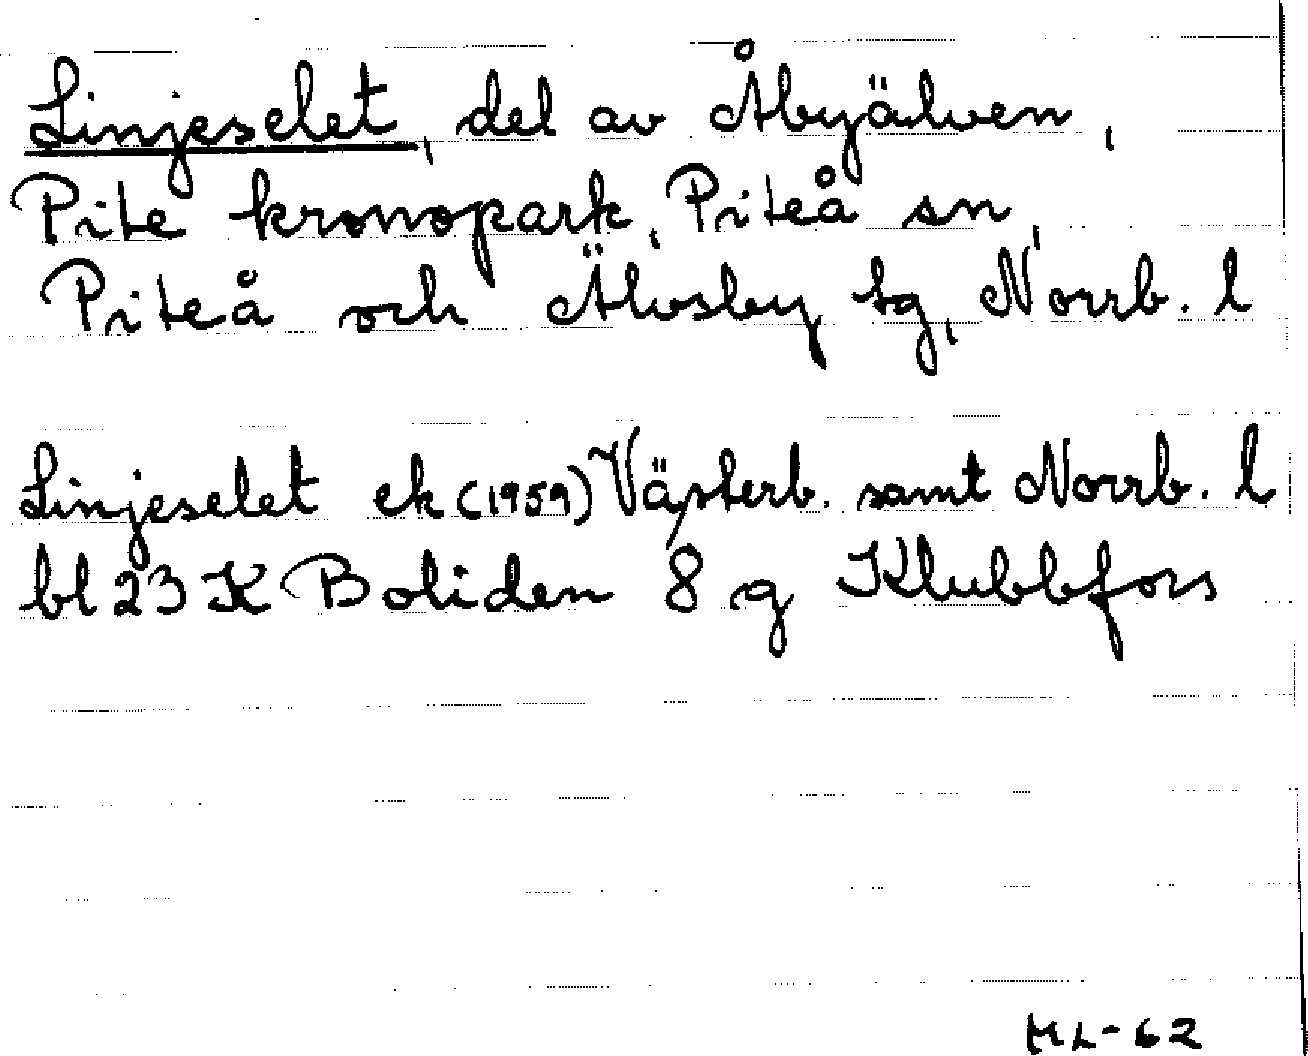 Linjeselet, del av Åbyälven,
Pite kronopark, Piteå sn,
Piteå och Älvsby tg, Norrb. l
Linjeselet ek (1959) Västerb. samt Norrb. l
bl 23 K Boliden 8 g Klubbfors
ML-62